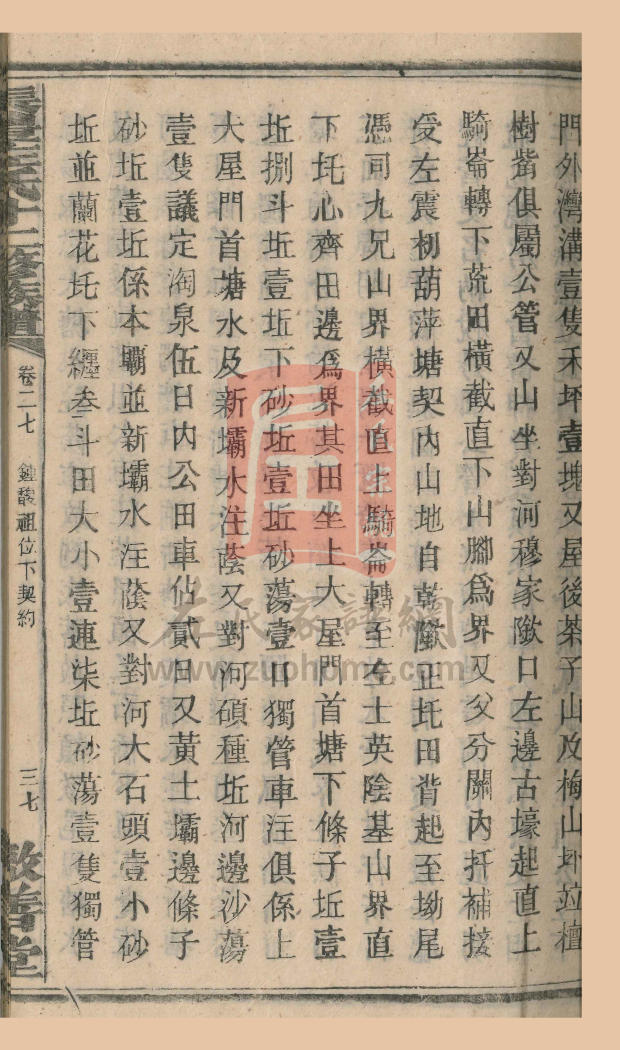 門外灣溝壹隻禾坪壹塊又屋後茶子山及梅山圤竝檀
樹甾俱屬公管又山坐對河穆家㘭口左邊古壕起直上
騎崙轉下荒田橫截直下山腳爲界又父分關內扦補接
受左震初葫萍塘契內山地自乾㘭正圫田背起至坳尾
憑司九兄山界橫截直上騎崙轉至左士英陰基山界直
下圫心齊田邊爲界其田坐上大屋門首塘下條子坵壹
坵捌斗坵壹坵下砂坵壹坵砂蕩壹口獨管車注俱係上
大屋門首塘水及新壩水注蔭又對河碩種坵河邊沙蕩
壹隻議定淘泉伍日內公田車佔貳日又黃土壩邊條子
砂坵壹坵係本壩並新壩水注蔭又對河大石頭壹小砂
坵並蘭花圫下纏叁斗田大小壹連柒坵砂蕩壹隻獨管
左氏十二修族譜
卷二七
鍾馥祖位下契約
三七
敦善堂
左氏家譜網
www.zuohome.com